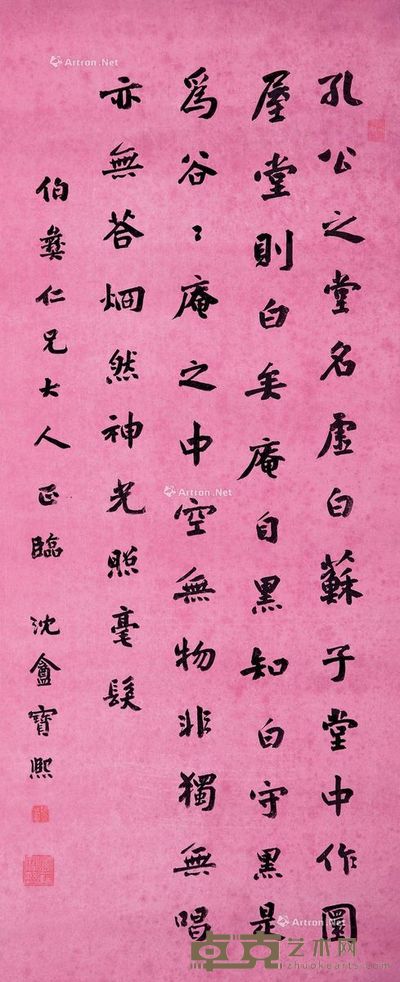 孔公之堂名虛白蘇子堂中作圜
屋堂則白矣庵自黑知白守黑是
爲谷〻庵之中空無物非獨無唱
亦無荅烱然神光照毫髮
伯彝仁兄大人正臨 沈盦寶熙
Artron.Net
Artron.Net
Artron.Net
卓克艺术网
zhuokearts.com